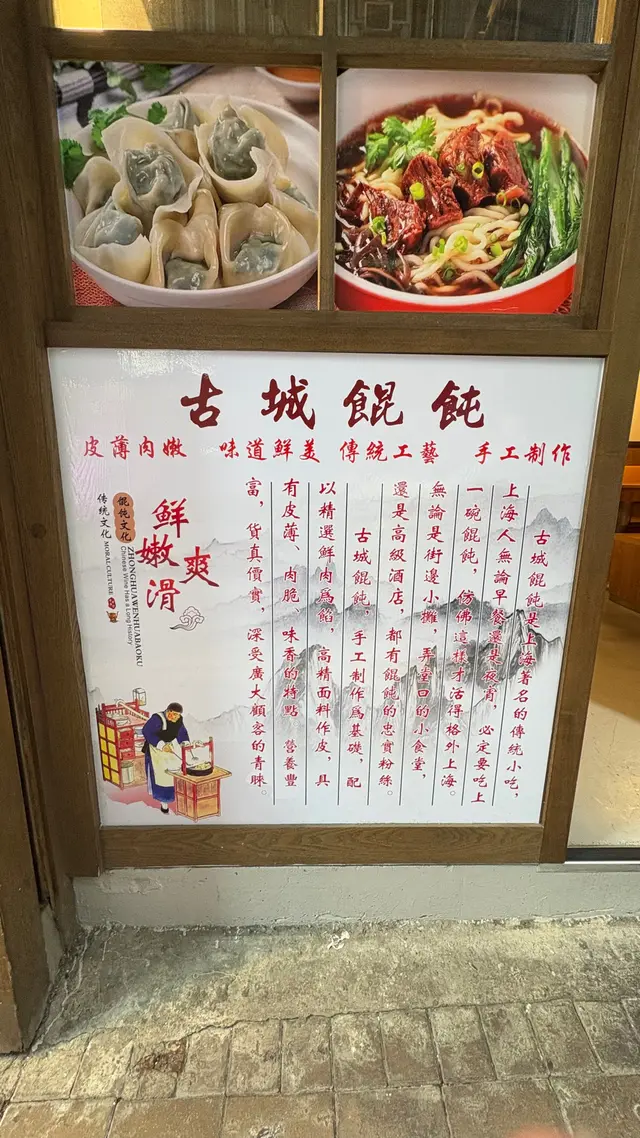 古城餛飩
皮薄肉嫩 味道鲜美 傳統工藝 手工制作
古城餛飩是上海著名的傳統小吃，
上海人無論早餐還是夜宵，必定要吃上
一碗餛飩，仿佛這樣才活得格外上海。
無論是街邊小攤，弄堂口的小食堂，
還是高級酒店，都有餛飩的忠實粉絲。
古城餛飩，手工制作爲基礎，配
以精選鮮肉爲餡，高精面料作皮，具
有皮薄、肉脆、味香的特點 營養豐
富，貨真價實，深受廣大顧客的青睞。
鲜嫩爽滑
ZHONGHUAWENHUABAOKU
Chinese Wine Has a Long History
馄饨文化
传统文化 MORAL CULTURE